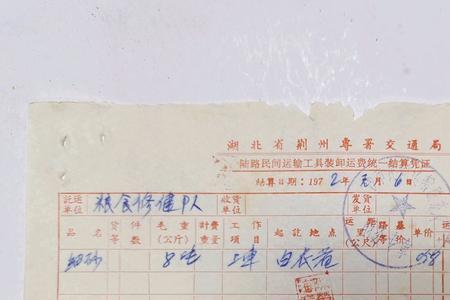 湖北省荆州專署交通局
陆路民间运输工具装卸运费统一结算凭证
结算日期：1972年元月6日
託运单位 粮食修建队 收货单位 发货单位
品名 货件等数 毛重(公斤) 計費重量 工作項目 起訖地点 运距(公尺) 路等 基价 单价
细砂 8吨 上車